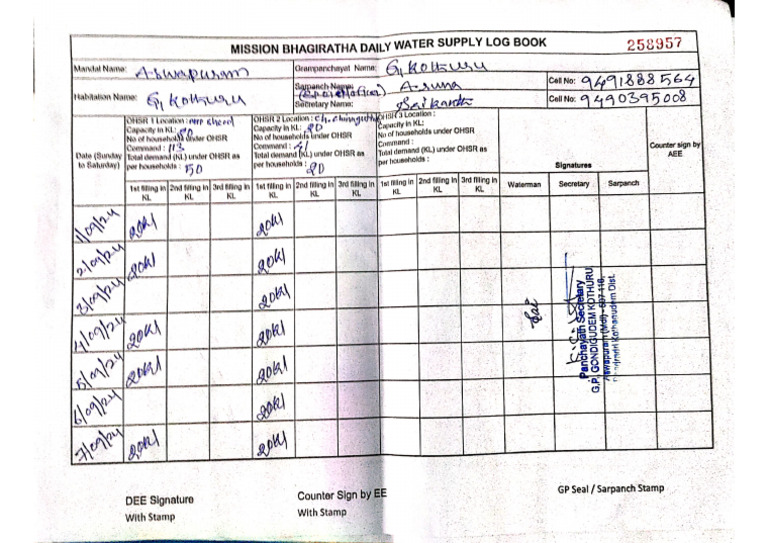 MISSION BHAGIRATHA DAILY WATER SUPPLY LOG BOOK 258957
Mandal Name: Aswapuram Grampanchayat Name: G, Kothuru
Sarpanch Name: Aruna Cell No: 9491888564
Habitation Name: G, Kothuru Secretary Name: Saikanth Cell No: 9490395008
Date (Sunday to Saturday)
OHSR 1 Location :
Capacity in KL:
No of households under OHSR
Command : 113
Total demand (KL) under OHSR as
per households : 50
OHSR 2 Location :
Capacity in KL: 20
No of households under OHSR
Command : 41
Total demand (KL) under OHSR as
per households : 20
OHSR 3 Location :
Capacity in KL:
No of households under OHSR
Command :
Total demand (KL) under OHSR as
per households :
Signatures
Counter sign by AEE
1st filling in KL 2nd filling in KL 3rd filling in KL 1st filling in KL 2nd filling in KL 3rd filling in KL 1st filling in KL 2nd filling in KL 3rd filling in KL Waterman Secretary Sarpanch
1/09/24 20Kl 20Kl
2/09/24 20Kl 20Kl
3/09/24 20Kl
4/09/24 20Kl 20Kl
5/09/24 20Kl 20Kl
6/09/24 20Kl
7/09/24 20Kl 20Kl
Sai
Panchayath Secretary
G.P. GONDIGUDEM KOTHURU
Aswapuram (Mdl) - 507 116
Kothagudem Dist.
DEE Signature
With Stamp
Counter Sign by EE
With Stamp
GP Seal / Sarpanch Stamp